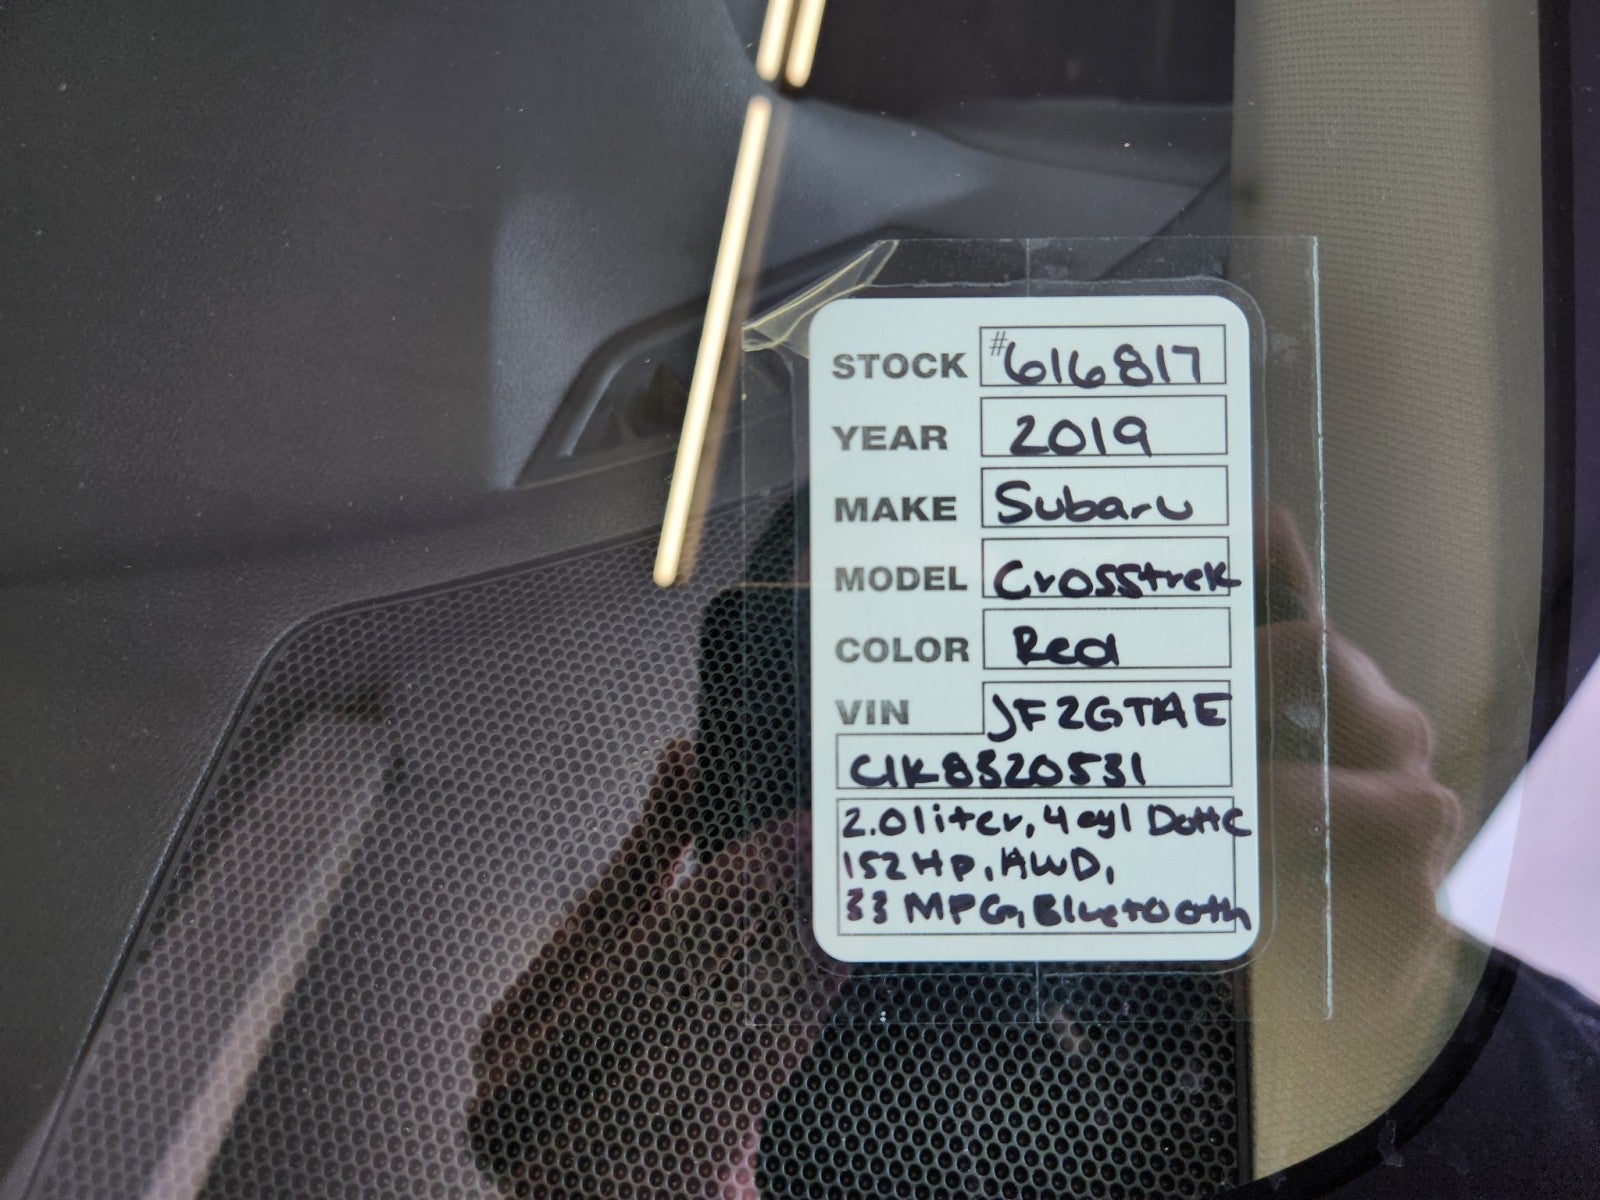 STOCK #616817
YEAR 2019
MAKE Subaru
MODEL Crosstrek
COLOR Red
VIN JF2GTAAE
C1K8320531
2.0 liter, 4 cyl DOHC
152 Hp, AWD,
33 MPG, Bluetooth